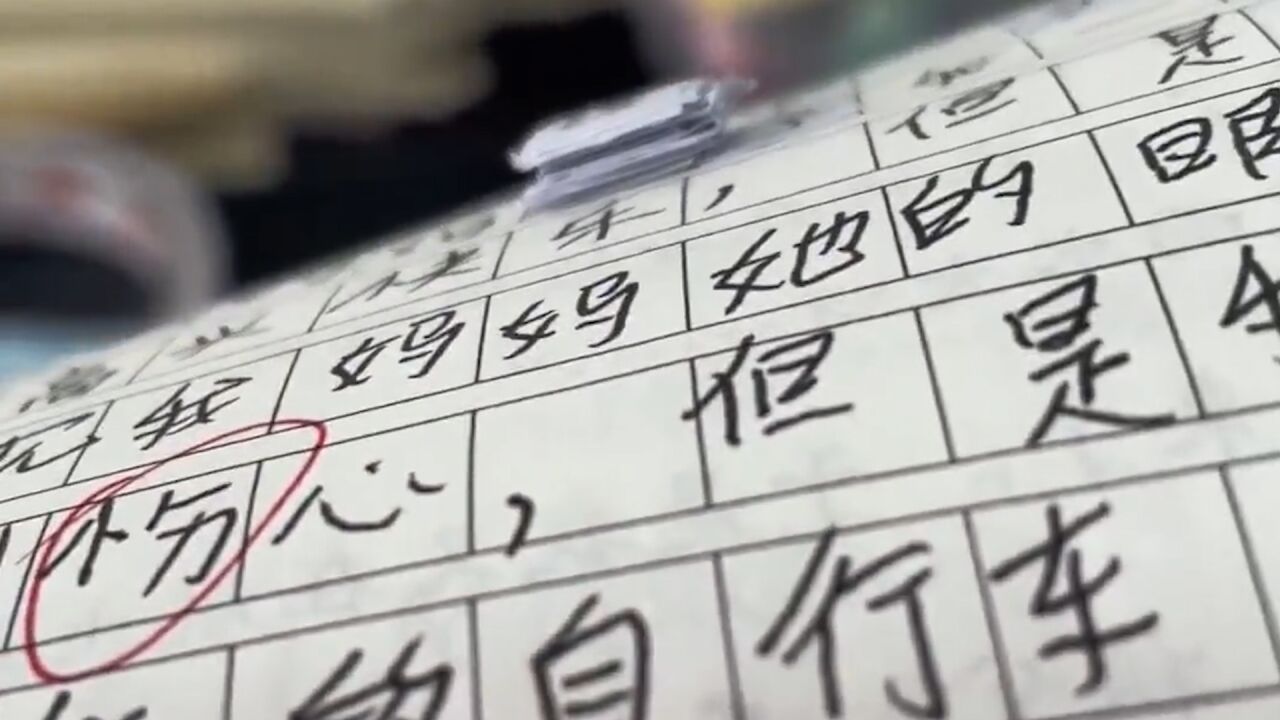 快乐，但是
我妈妈她的眼
心，但是
的自行车